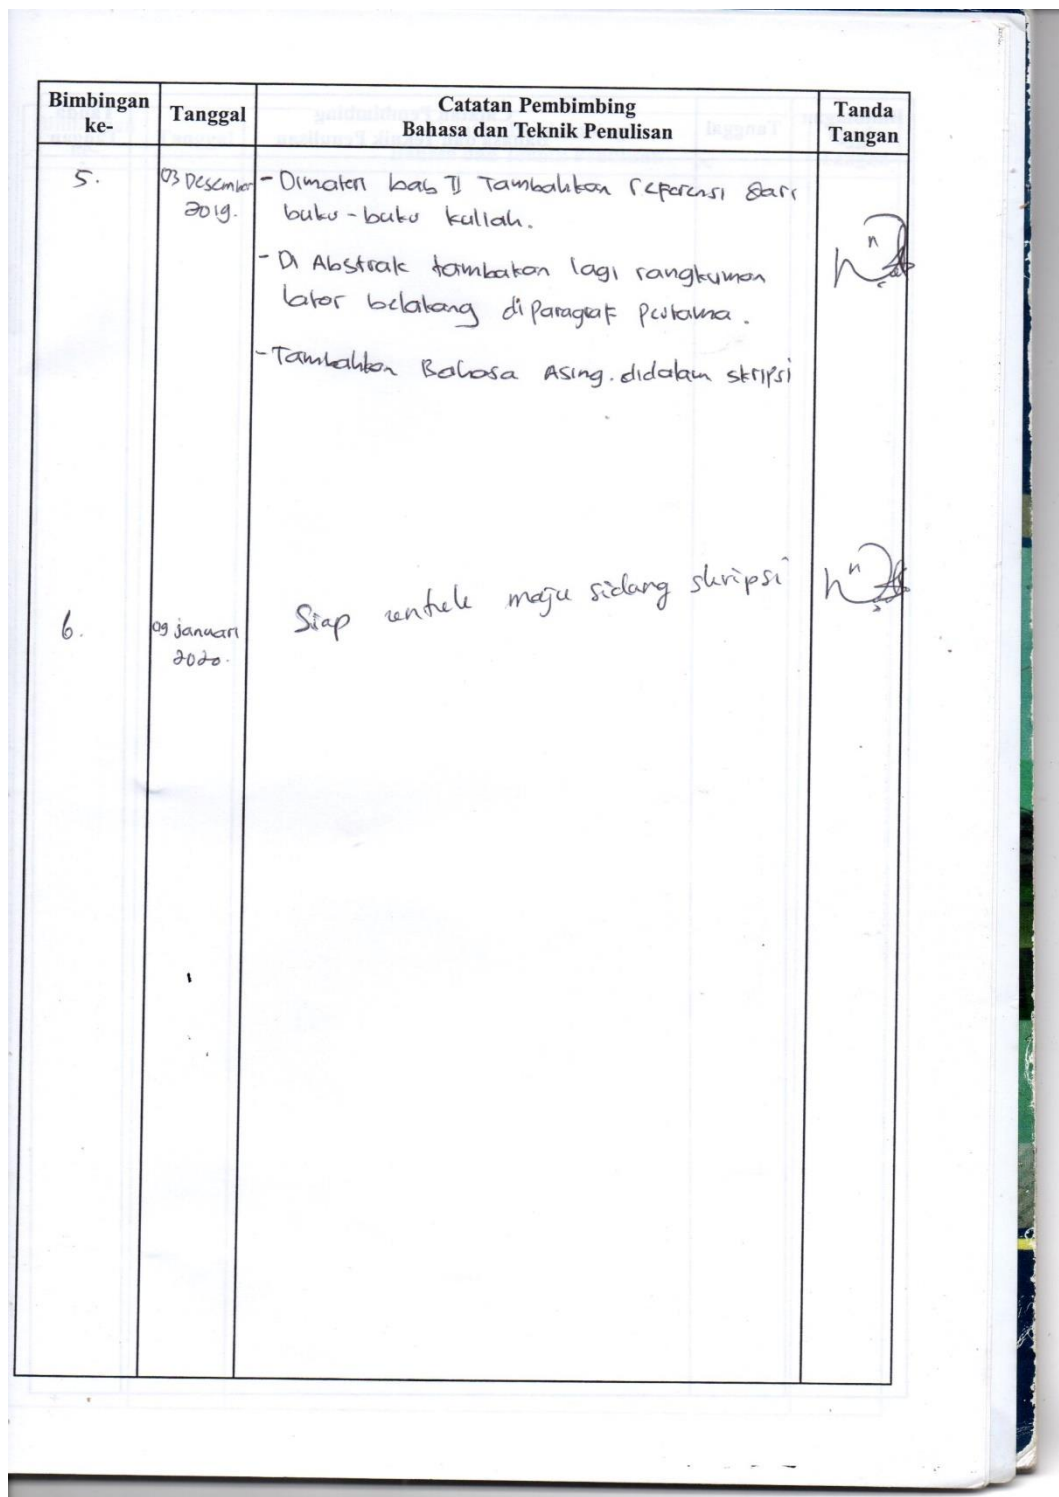 Bimbingan ke-
Tanggal
Catatan Pembimbing
Bahasa dan Teknik Penulisan
Tanda
Tangan
5.
03 Desember
2019.
- Dimateri bab II Tambahkan referensi dari
buku-buku kuliah.
- Di Abstrak tambakan lagi rangkuman
latar belakang diparagraf pertama.
- Tambahkan Bahasa Asing. didalam skripsi
6.
09 januari
2020.
Siap untuk maju sidang skripsi